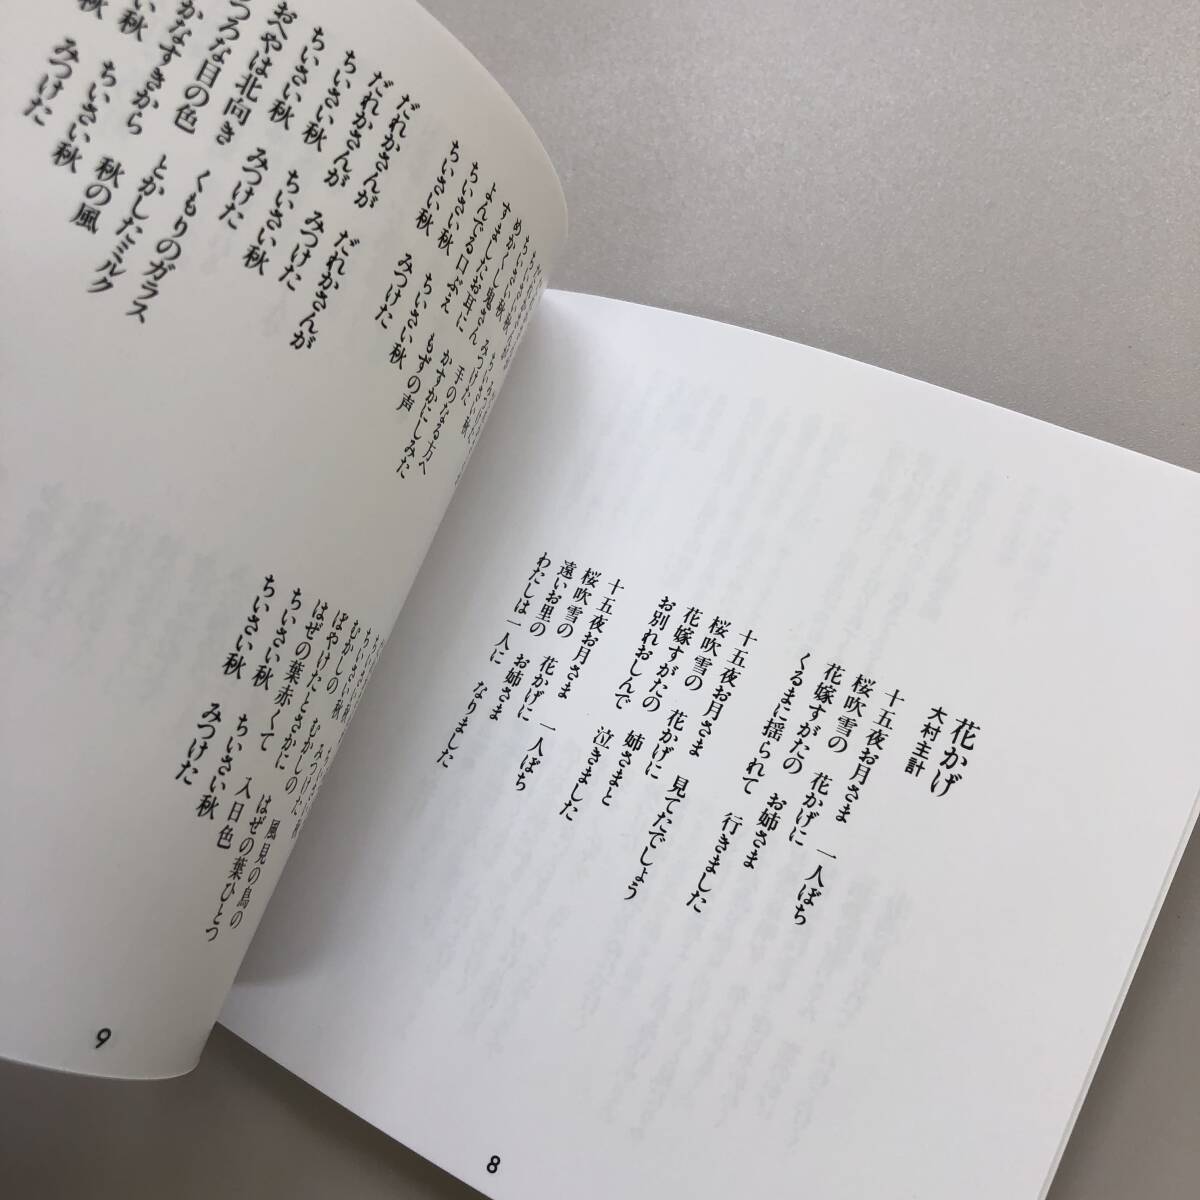 花かげ
大村主計
十五夜お月さま 一人ぼち
桜吹雪の 花かげに
花嫁すがたの お姉さま
くるまに揺られて 行きました
十五夜お月さま 見てたでしょう
桜吹雪の 花かげに
花嫁すがたの 姉さまと
お別れおしんで 泣きました
十五夜お月さま 一人ぼち
桜吹雪の 花かげに
遠いお里の お姉さま
わたしは一人に なりました
8
手のなる方へ
すましたお耳に かすかにしみた
よんでる口ぶえ もずの声
ちいさい秋 ちいさい秋
ちいさい秋 みつけた
だれかさんが だれかさんが
だれかさんが みつけた
ちいさい秋 ちいさい秋
ちいさい秋 みつけた
おへやは北向き くもりのガラス
つろな目の色 とかしたミルク
かなすきから 秋の風
いさい秋 ちいさい秋
みつけた
むかしの むかしの 風見の鳥の
ぼやけたとさかに はぜの葉ひとつ
はぜの葉赤くて 入日色
ちいさい秋 ちいさい秋
ちいさい秋 みつけた
9